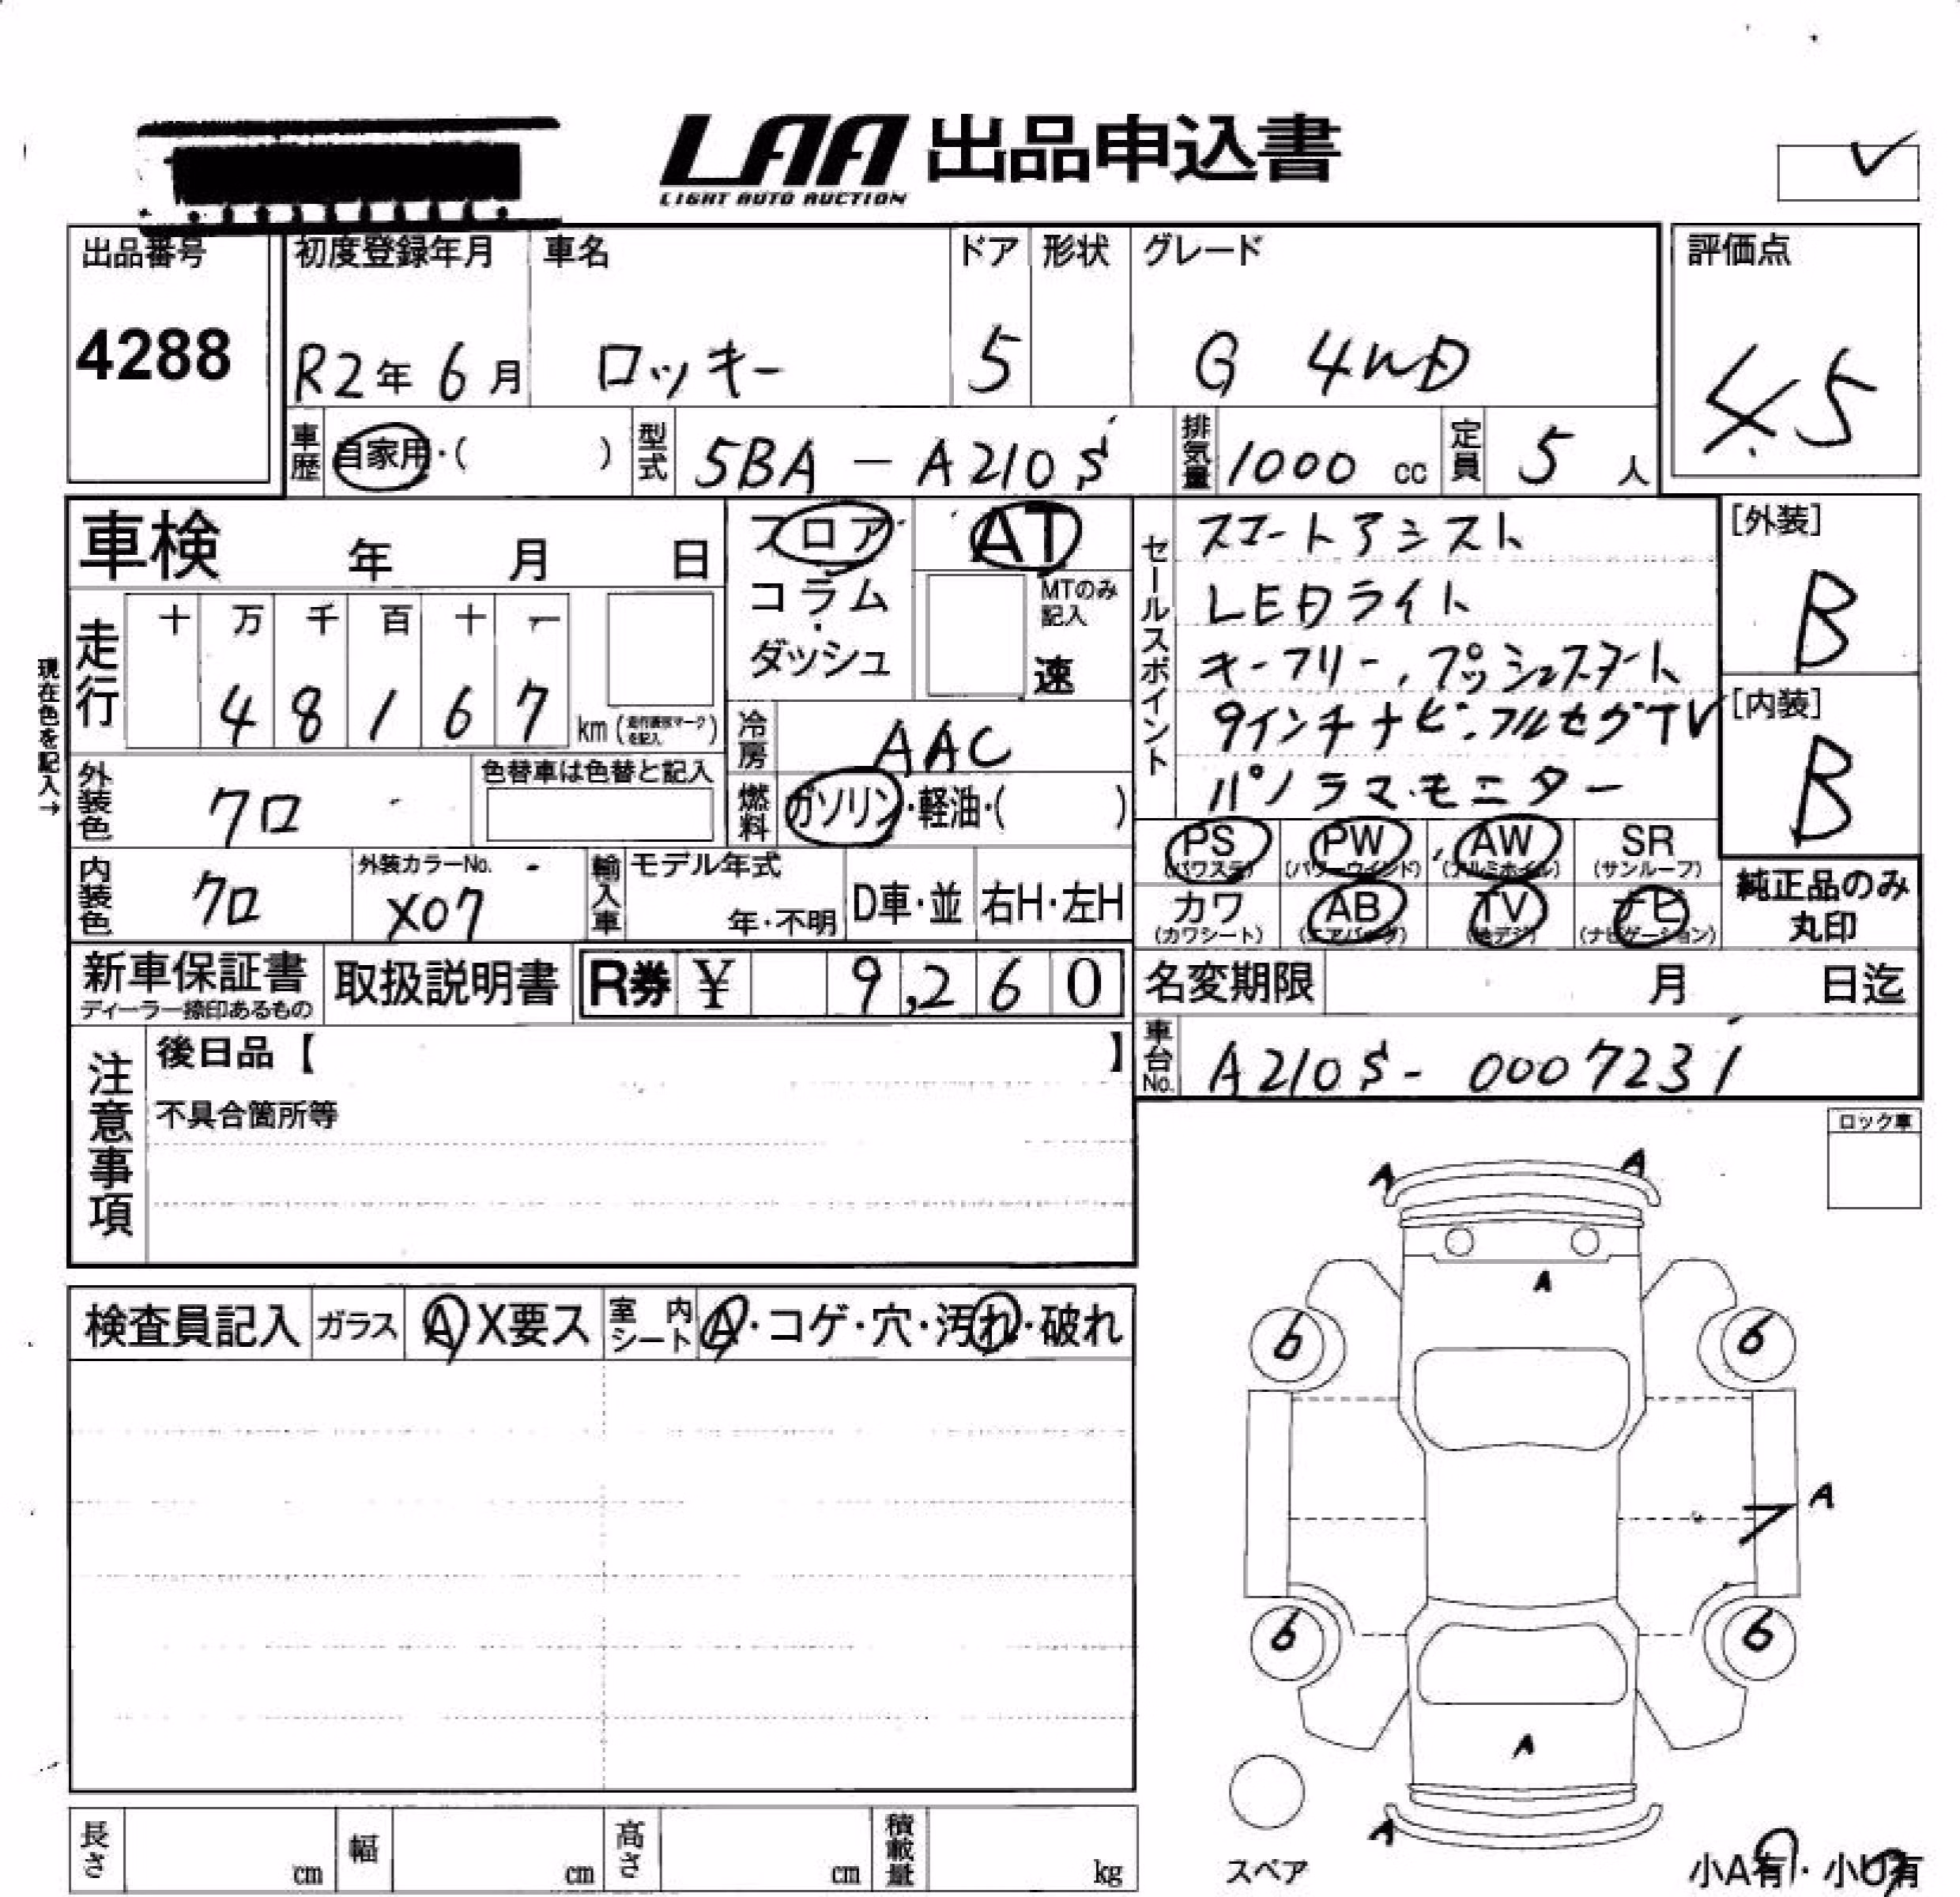 LAA 出品申込書
LIGHT AUTO AUCTION
出品番号 初度登録年月 車名 ドア 形状 グレード 評価点
4288 R2年 6月 ロッキー 5 G 4WD 4.5
車歴 自家用・( ) 型式 5BA-A210S 排気量 1000 cc 定員 5 人
車検 年 月 日 フロア AT セールスポイント スマートアシスト [外装]
コラム MTのみ記入 LEDライト B
走行 十 万 千 百 十 一 ダッシュ 速 キーフリー、プッシュスタート
現在色を記入→
4 8 1 6 7 km 冷房 AAC 9インチナビ・フルセグTV [内装]
外装色 クロ 色替車は色替と記入 燃料 ガソリン・軽油・( ) パノラマモニター B
PS (パワステ) PW (パワーウインド) AW (アルミホイル) SR (サンルーフ)
内装色 クロ 外装カラーNo. X07 輸入車 モデル年式 年・不明 D車・並 右H・左H カワ (カワシート) AB (エアバッグ) TV (地デジ) ナビ (ナビゲーション) 純正品のみ丸印
新車保証書 取扱説明書 R券 ¥ 9,260 名変期限 月 日迄
ディーラー捺印あるもの
注意事項 後日品【 】 車台No. A210S-0007231
不具合箇所等 ロック車
A A
A
検査員記入 ガラス A X要ス 室内シート A・コゲ・穴・汚れ・破れ
6 6
A
6 6
A
A
長さ cm 幅 cm 高さ cm 積載量 kg スペア 小A有・小U有